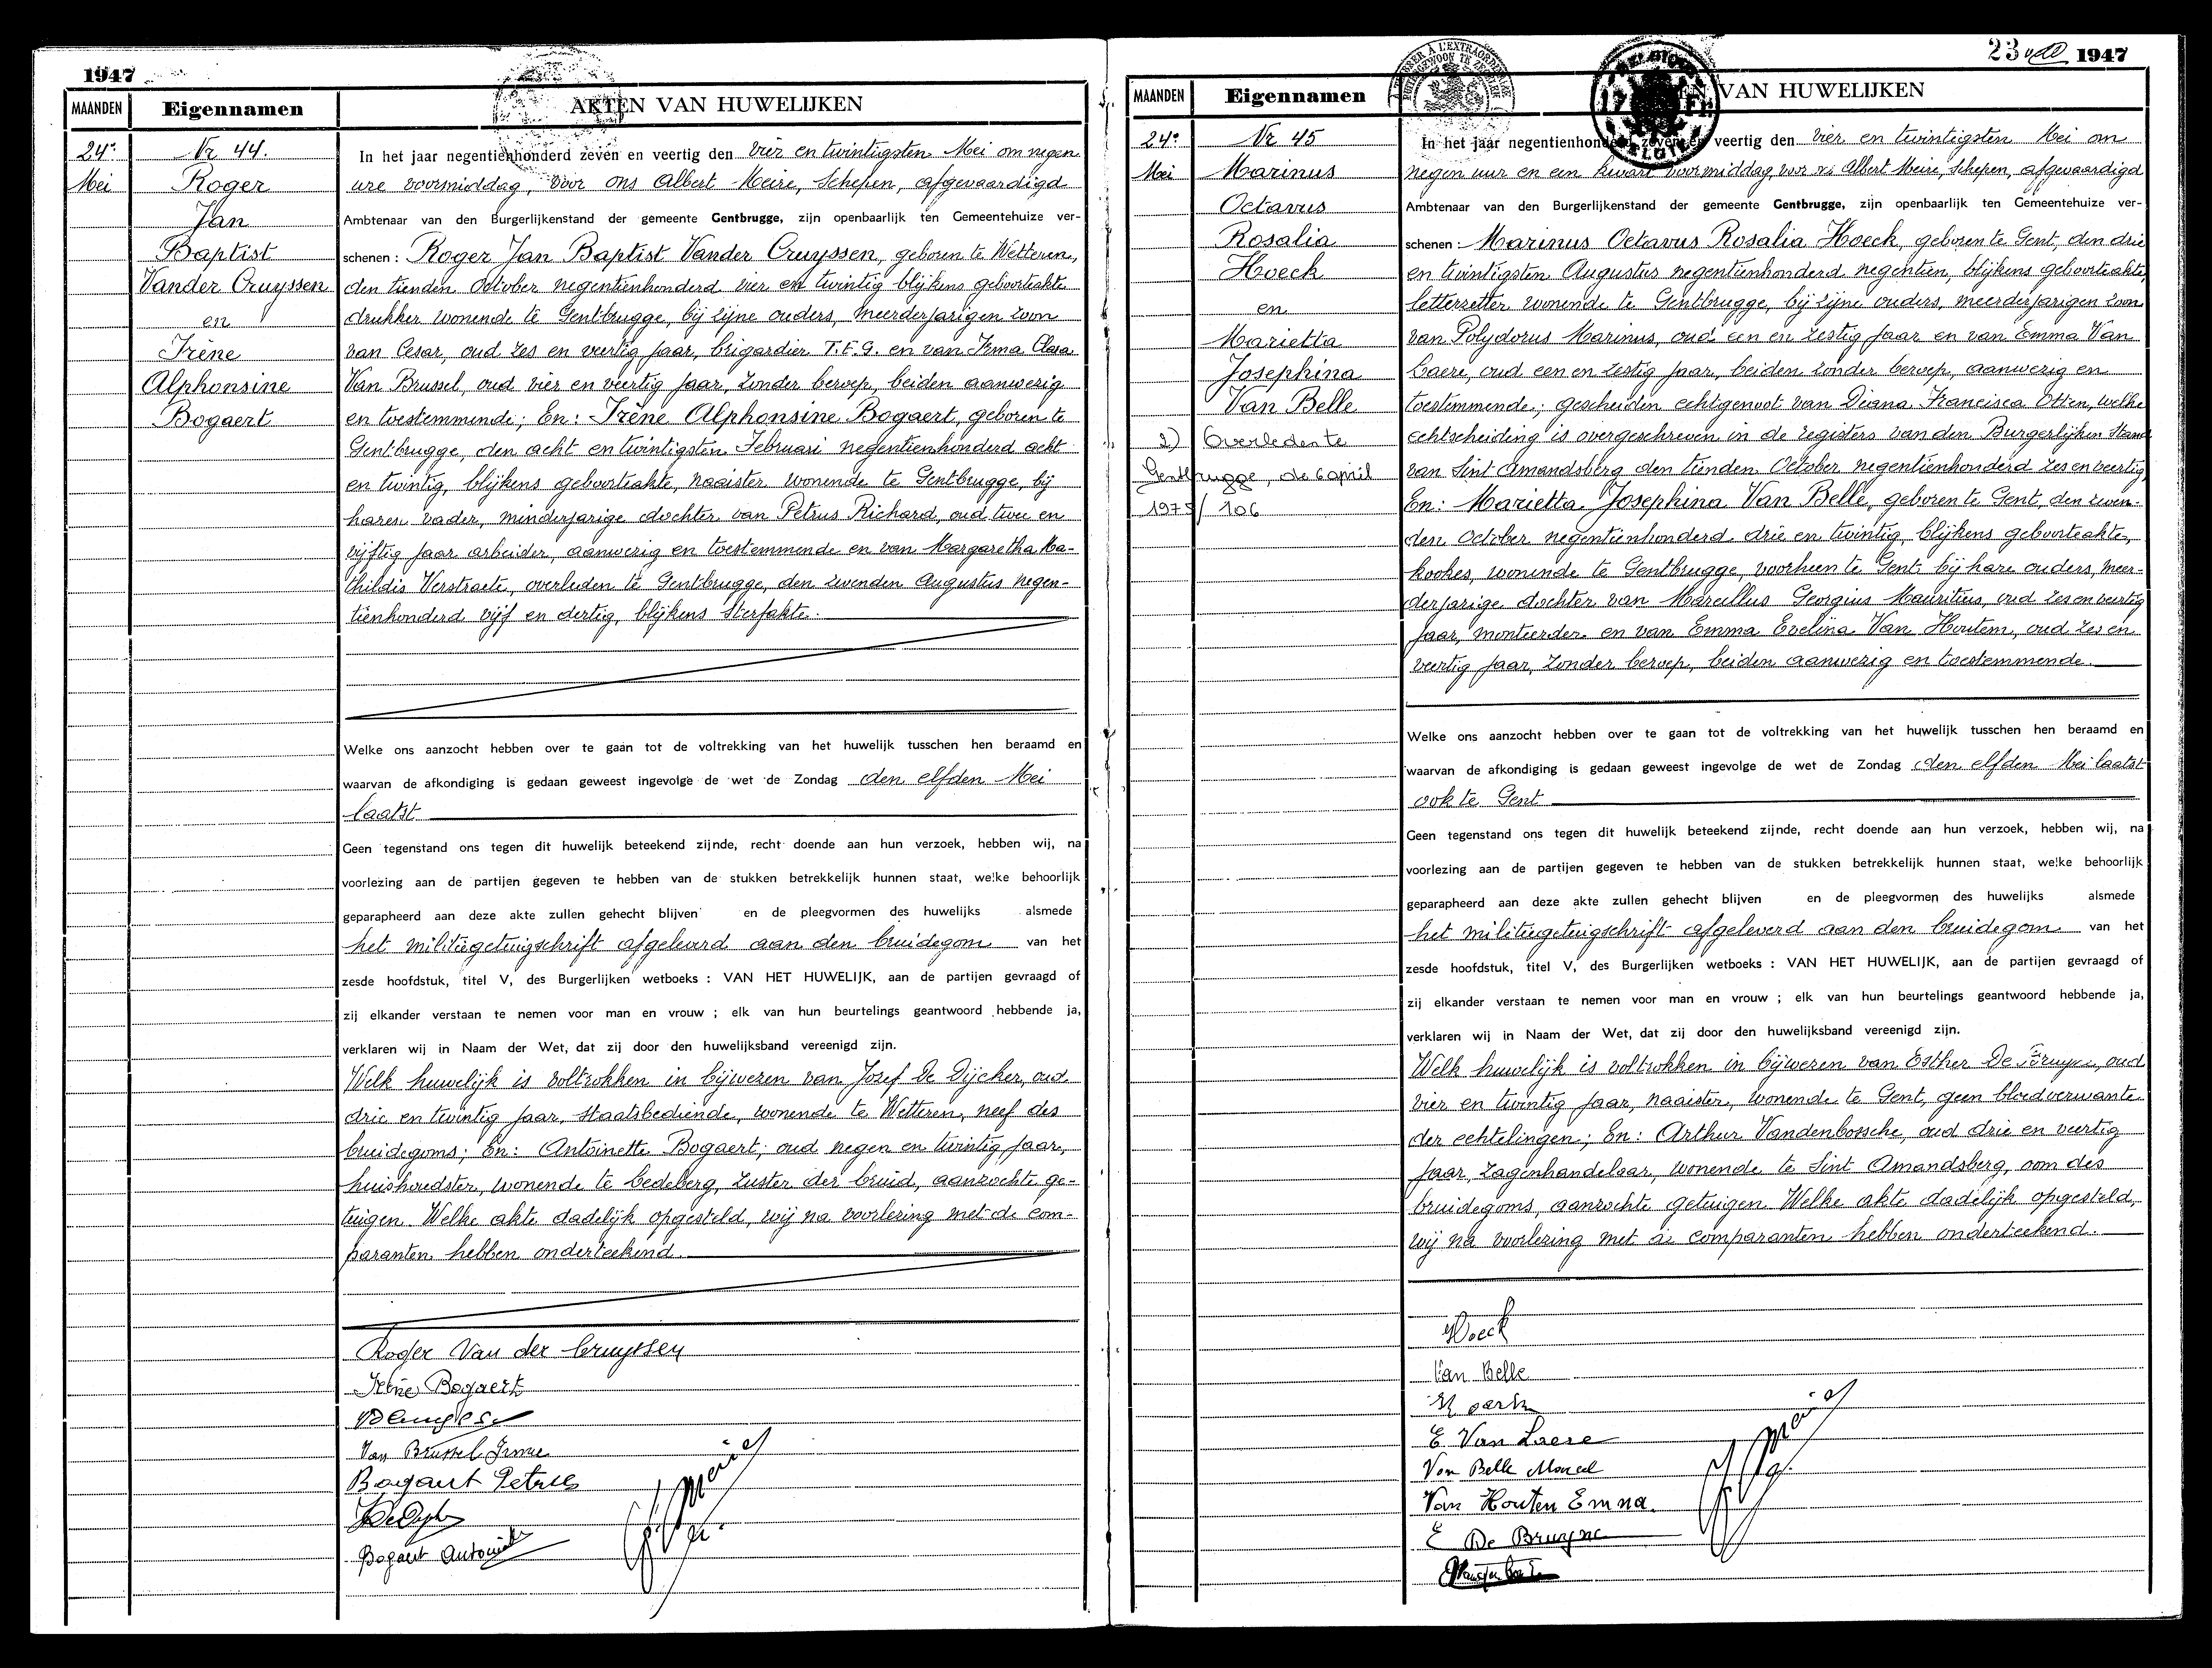 1947
MAANDEN Eigennamen AKTEN VAN HUWELIJKEN
24e Mei
Nr 44.
Roger
Jan
Baptist
Vander Cruyssen
en
Irène
Alphonsine
Bogaert
In het jaar negentienhonderd zeven en veertig den vier en twintigsten Mei om negen
ure voormiddag, voor ons Albert Meire, Schepen, afgevaardigd
Ambtenaar van den Burgerlijkenstand der gemeente Gentbrugge, zijn openbaarlijk ten Gemeentehuize ver-
schenen : Roger Jan Baptist Vander Cruyssen, geboren te Wetteren,
den tienden October negentienhonderd vier en twintig blijkens geboorteakte
drukker wonende te Gentbrugge, bij zijne ouders, meerderjarigen zoon
van Cesar, oud zes en veertig jaar, brigardier T.E.G. en van Irma Clara
Van Brussel, oud vier en veertig jaar, zonder beroep, beiden aanwezig
en toestemmende; En: Irène Alphonsine Bogaert, geboren te
Gentbrugge, den acht en twintigsten Februari negentienhonderd acht
en twintig, blijkens geboorteakte, naaister wonende te Gentbrugge, bij
haren vader, minderjarige dochter van Petrus Richard, oud twee en
vijftig jaar arbeider, aanwezig en toestemmende en van Margaretha Ma-
thildis Verstraete, overleden te Gentbrugge, den zevenden Augustus negen-
tienhonderd vijf en dertig, blijkens sterfakte.
Welke ons aanzocht hebben over te gaan tot de voltrekking van het huwelijk tusschen hen beraamd en
waarvan de afkondiging is gedaan geweest ingevolge de wet de Zondag den elfden Mei
laatst
Geen tegenstand ons tegen dit huwelijk beteekend zijnde, recht doende aan hun verzoek, hebben wij, na
voorlezing aan de partijen gegeven te hebben van de stukken betrekkelijk hunnen staat, welke behoorlijk
geparapheerd aan deze akte zullen gehecht blijven en de pleegvormen des huwelijks alsmede
het militiegetuigschrift afgeleverd aan den bruidegom van het
zesde hoofdstuk, titel V, des Burgerlijken wetboeks : VAN HET HUWELIJK, aan de partijen gevraagd of
zij elkander verstaan te nemen voor man en vrouw ; elk van hun beurtelings geantwoord hebbende ja,
verklaren wij in Naam der Wet, dat zij door den huwelijksband vereenigd zijn.
Welk huwelijk is voltrokken in bijwezen van Jozef De Dijcher, oud
drie en twintig jaar, staatsbediende, wonende te Wetteren, neef des
bruidegoms; En: Antoinette Bogaert, oud negen en twintig jaar,
huishoudster, wonende te Ledeberg, zuster der bruid, aanzochte ge-
tuigen. Welke akte dadelijk opgesteld, wij na voorlezing met de com-
paranten hebben onderteekend.
Roger Van der Cruyssen
Irène Bogaert
Van Brussel Irma
Bogaert Petrus
Bogaert Antoinette
23 1947
MAANDEN Eigennamen AKTEN VAN HUWELIJKEN
24e Mei
Nr 45
Marinus
Octavus
Rosalia
Hoeck
en
Marietta
Josephina
Van Belle
2) Overleden te
Gentbrugge, de 6 april
1975/106
In het jaar negentienhonderd zeven en veertig den vier en twintigsten Mei om
negen uur en een kwart voormiddag, voor ons Albert Meire, Schepen, afgevaardigd
Ambtenaar van den Burgerlijkenstand der gemeente Gentbrugge, zijn openbaarlijk ten Gemeentehuize ver-
schenen : Marinus Octavus Rosalia Hoeck, geboren te Gent, den drie
en twintigsten Augustus negentienhonderd negentien, blijkens geboorteakte,
letterzetter wonende te Gentbrugge, bij zijne ouders, meerderjarigen zoon
van Polydorus Marinus, oud een en zestig jaar en van Emma Van
Laere, oud een en zestig jaar, beiden zonder beroep, aanwezig en
toestemmende; gescheiden echtgenoot van Diana Francisca Otten, welke
echtscheiding is overgeschreven in de registers van den Burgerlijken Stand
van Sint Amandsberg den tienden October negentienhonderd zes en veertig
En: Marietta Josephina Van Belle, geboren te Gent, den zeven-
den October negentienhonderd drie en twintig, blijkens geboorteakte,
kookes, wonende te Gentbrugge, voorheen te Gent bij hare ouders, meer-
derjarige dochter van Marcellus Georgius Mauritius, oud zes en veertig
jaar, monteerder en van Emma Evelina Van Houtem, oud zes en
veertig jaar, zonder beroep, beiden aanwezig en toestemmende.
Welke ons aanzocht hebben over te gaan tot de voltrekking van het huwelijk tusschen hen beraamd en
waarvan de afkondiging is gedaan geweest ingevolge de wet de Zondag den elfden Mei laatst
ook te Gent
Geen tegenstand ons tegen dit huwelijk beteekend zijnde, recht doende aan hun verzoek, hebben wij, na
voorlezing aan de partijen gegeven te hebben van de stukken betrekkelijk hunnen staat, welke behoorlijk
geparapheerd aan deze akte zullen gehecht blijven en de pleegvormen des huwelijks alsmede
het militiegetuigschrift afgeleverd aan den bruidegom van het
zesde hoofdstuk, titel V, des Burgerlijken wetboeks : VAN HET HUWELIJK, aan de partijen gevraagd of
zij elkander verstaan te nemen voor man en vrouw ; elk van hun beurtelings geantwoord hebbende ja,
verklaren wij in Naam der Wet, dat zij door den huwelijksband vereenigd zijn.
Welk huwelijk is voltrokken in bijwezen van Esther De Bruyne, oud
vier en twintig jaar, naaister, wonende te Gent, geen bloedverwante
der echtelingen; En: Arthur Vandenbossche, oud drie en veertig
jaar, zagenhandelaar, wonende te Sint Amandsberg, oom des
bruidegoms, aanzochte getuigen. Welke akte dadelijk opgesteld,
wij na voorlezing met de comparanten hebben onderteekend.
Hoeck
Van Belle
E Van Laere
Van Belle Marcel
Van Houten Emma
E De Bruyne